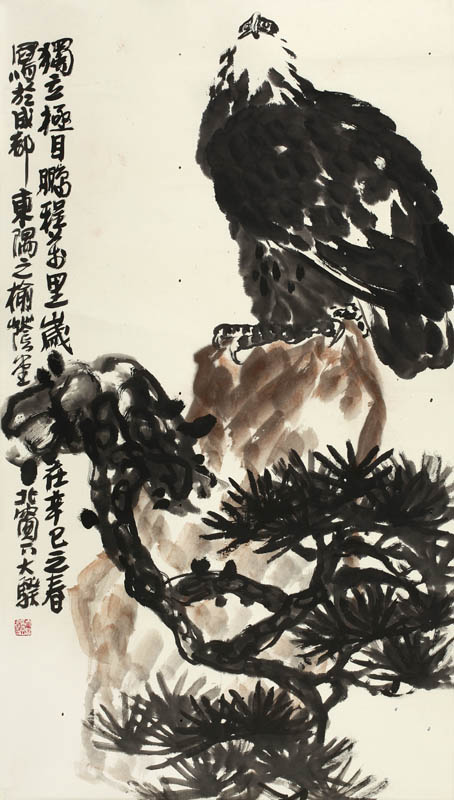 獨立極目鵬程萬里歲在辛巳之春
寫於成都東隅之榆蔭堂北窗下大